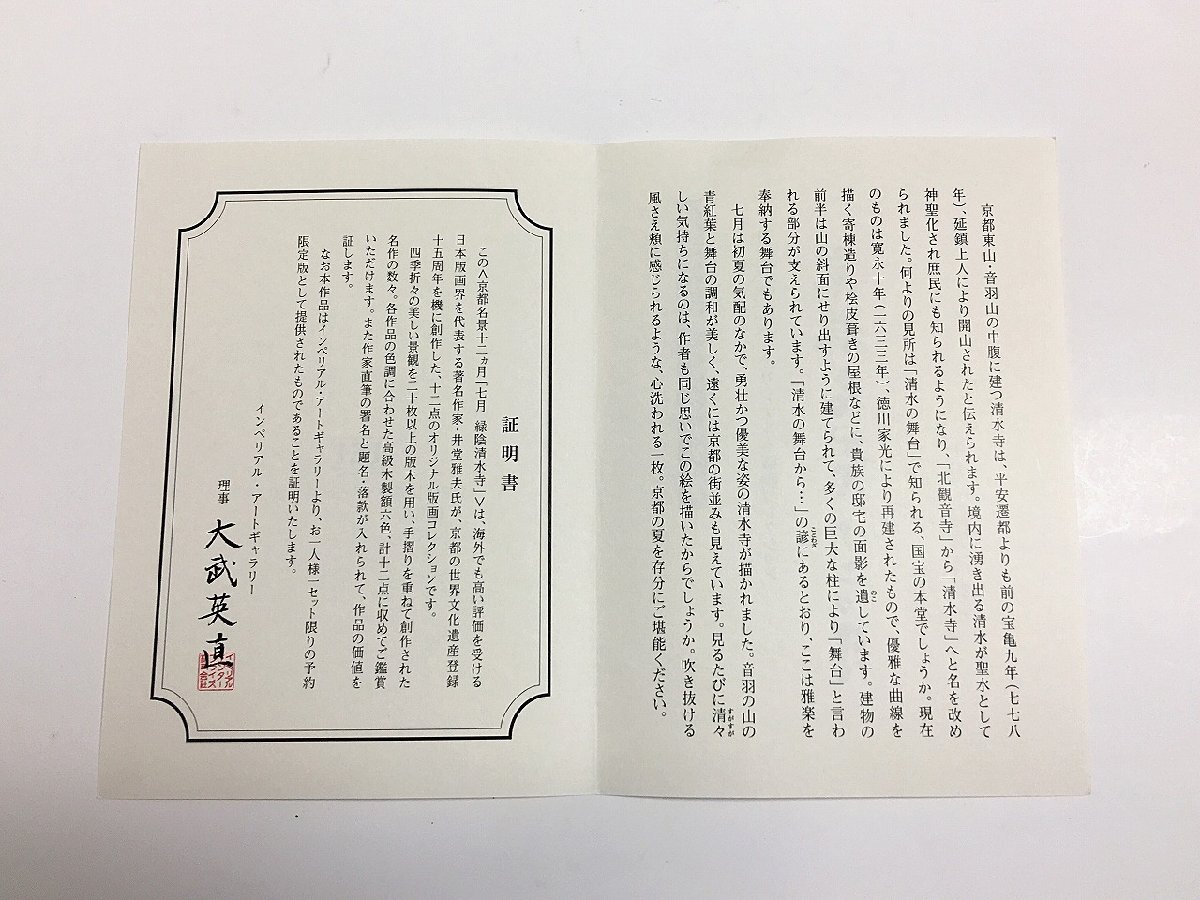 京都東山・音羽山の中腹に建つ清水寺は、平安遷都よりも前の宝亀九年(七七八
年)、延鎮上人により開山されたと伝えられます。境内に湧き出る清水が聖水として
神聖化され庶民にも知られるようになり、「北観音寺」から「清水寺」へと名を改め
られました。何よりの見所は「清水の舞台」で知られる、国宝の本堂でしょうか。現在
のものは寛永十年(一六三三年)、徳川家光により再建されたもので、優雅な曲線を
描く寄棟造りや桧皮葺きの屋根などに、貴族の邸宅の面影を遺しています。建物の
前半は山の斜面にせり出すように建てられて、多くの巨大な柱により「舞台」と言わ
れる部分が支えられています。「清水の舞台から…」の諺にあるとおり、ここは雅楽を
奉納する舞台でもあります。
七月は初夏の気配のなかで、勇壮かつ優美な姿の清水寺が描かれました。音羽の山の
青紅葉と舞台の調和が美しく、遠くには京都の街並みも見えています。見るたびに清々
しい気持ちになるのは、作者も同じ思いでこの絵を描いたからでしょうか。吹き抜ける
風さえ頬に感じられるような、心洗われる一枚。京都の夏を存分にご堪能ください。
証明書
この<京都名景十二ヵ月「七月 緑陰清水寺」>は、海外でも高い評価を受ける
日本版画界を代表する著名作家・井堂雅夫氏が、京都の世界文化遺産登録
十五周年を機に創作した、十二点のオリジナル版画コレクションです。
四季折々の美しい景観を二十枚以上の版木を用い、手摺りを重ねて創作された
名作の数々。各作品の色調に合わせた高級木製額六色、計十二点に収めてご鑑賞
いただけます。また作家直筆の署名と題名・落款が入れられて、作品の価値を
証します。
なお本作品はインペリアル・アートギャラリーより、お一人様一セット限りの予約
限定版として提供されたものであることを証明いたします。
インペリアル・アートギャラリー
理事 大武英直